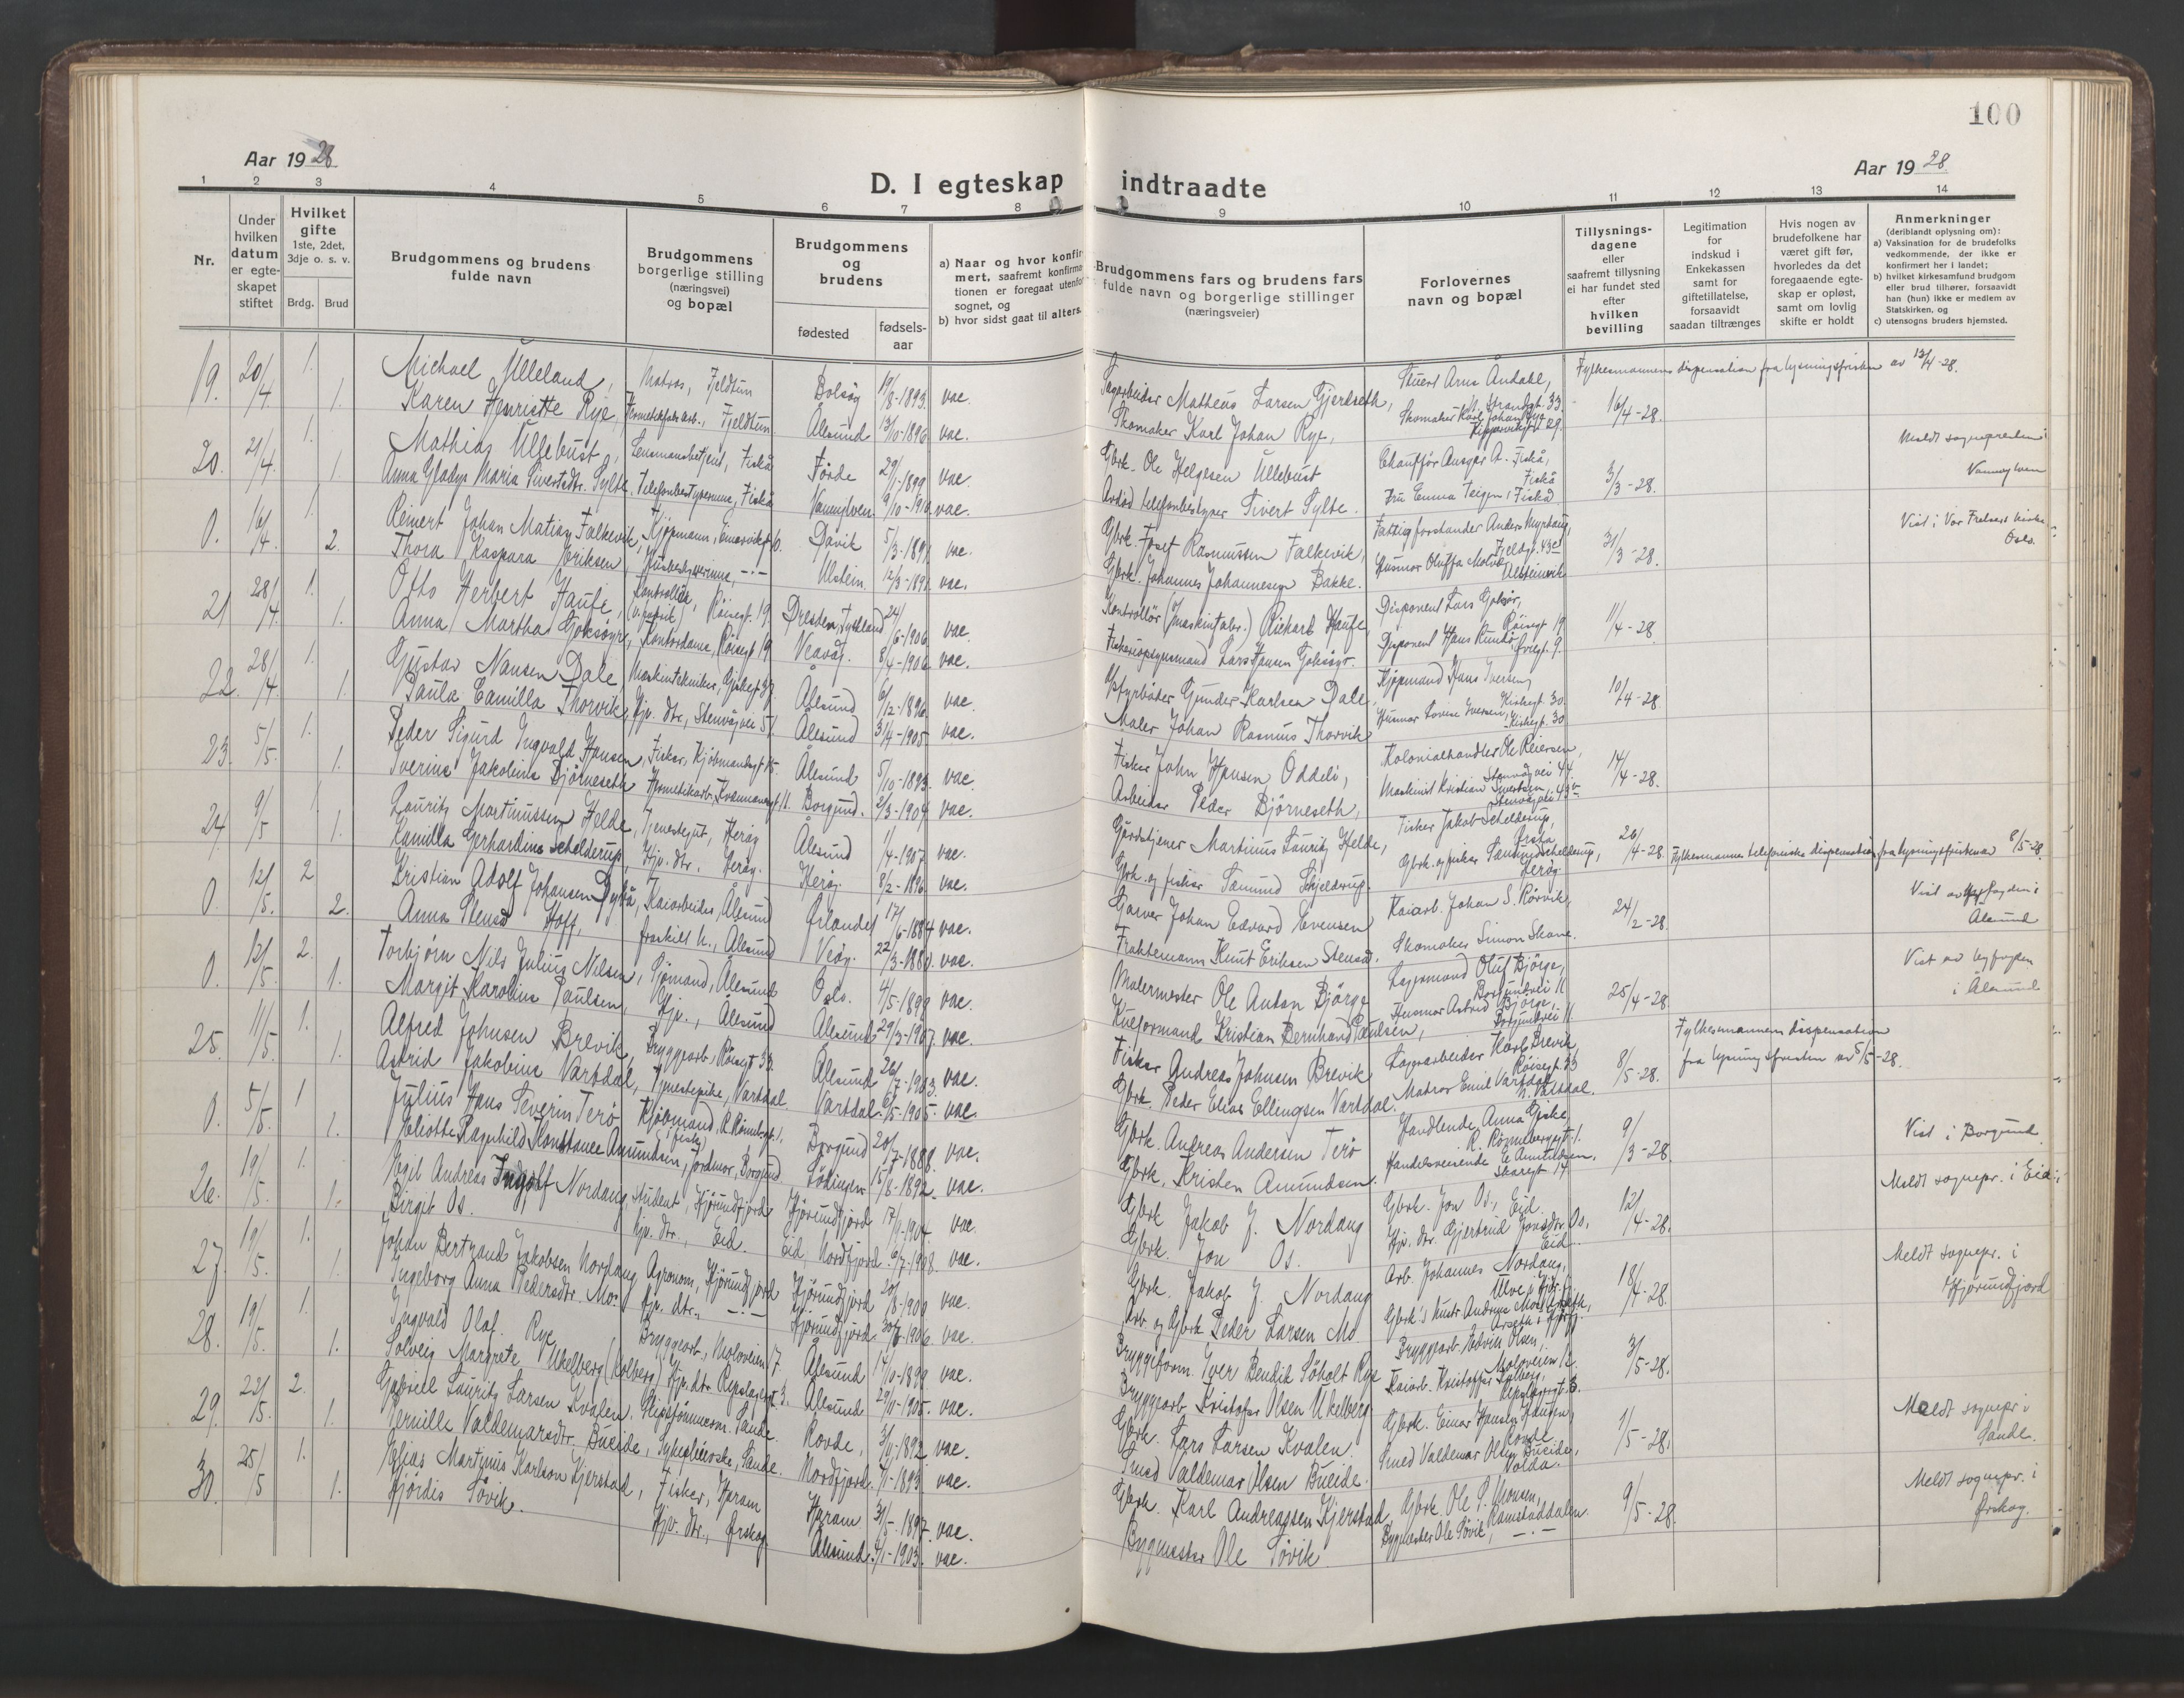 100
Aar 1928
Aar 1928
D. I egteskap indtraadte
1 2 3 4 5 6 7 8 9 10 11 12 13 14
Nr.
Under hvilken datum er egteskapet stiftet
Hvilket gifte 1ste, 2det, 3dje o. s. v.
Brdg. Brud
Brudgommens og brudens fulde navn
Brudgommens borgerlige stilling (næringsvei) og bopæl
Brudgommens og brudens
fødested
fødselsaar
a) Naar og hvor konfirmert, saafremt konfirmationen er foregaat utenfor sognet, og
b) hvor sidst gaat til alters.
Brudgommens fars og brudens fars fulde navn og borgerlige stillinger (næringsveier)
Forlovernes navn og bopæl
Tillysningsdagene eller saafremt tillysning ei har fundet sted efter hvilken bevilling
Legitimation for indskud i Enkekassen samt for giftetillatelse, forsaavidt saadan tiltrænges
Hvis nogen av brudefolkene har været gift før, hvorledes da det foregaaende egteskap er opløst, samt om lovlig skifte er holdt
Anmerkninger (deriblandt oplysning om):
a) Vaksination for de brudefolks vedkommende, der ikke er konfirmert her i landet;
b) hvilket kirkesamfund brudgom eller brud tilhører, forsaavidt han (hun) ikke er medlem av Statskirken, og
c) utensogns bruders hjemsted.
19. 20/4 1. Michael Ulleland, Matros, Fjeldtun Bolsøy 19/8-1893. vac. Sagarbeider Mattheus Larsen Gjerdseth, Stuert Arne Åndahl, N. Strandgt. 33. 16/4-28. Fylkesmannens dispensation fra lysningsfristen av 13/4-28.
1. Karen Henriette Rye, Hermetikfabr.arb., Fjeldtun Ålesund 13/10-1896 vac. Skomaker Karl Johan Rye, Skomaker Karl Johan Rye 29.
20. 21/4 1. Mathias Ullebust, Lensmansbetjent, Fiskå Førde 29/1-1899 vac. Gbrk. Ole Helgesen Ullebust Chauffør Ansgar A. Fiskå, Fiskå 3/3-28. Meldt sognepresten i
1. Anna Gladys Maria Sivertsdtr. Sylte, Telefonbestyrerinne, Fiskå Vannylven 9/10-1910 vac. Avdød telefonbestyrer Sivert Sylte. Fru Emma Teigen, Fiskå Vannylven
0. 16/4. 1. Reinert Johan Matias Falkevik, Kjøpmann, Davik 5/3-1891. vac. Gbrk. Josef Rasmussen Falkevik, Fattigforstander Anders Myrhaug, Fjeldgt. 43 31/3-28. Viet i Vor Frelsers kirke Oslo.
2. Thora Kaspara Eriksen, Husbestyrerinne, -"- Ulstein. 12/3-1891. vac. Gbrk. Johannes Johannesen Bakke. Husmor Oluffa Molvær Ulsteinvik
21 28/4. 1. Otto Herbert Haufe, Kontrollør, Røisegt. 19. Dresden, Tyskland 24/6-1906. vac. Kontrollør (maskinfabr.) Richard Haufe, Disponent Lars Goksør, Røisegt. 19 11/4-28.
1. Anna Martha Goksøyr, Kontordame, Røisegt. 19 Veavåg. 8/4-1906. vac. Fiskeriopsynsmand Lars Hansen Goksøyr. Disponent Hans
22. 28/4 1. Gustav Nansen Dale, Maskintekniker, Ålesund 6/12-1896. vac. Gunder Karlsen Dale, Kjøpmand Hans Iversen, Kirkegt. 30. 10/4-28.
1. Paula Camilla Thorvik, Hjv. dtr., Stenvågvei 51 Ålesund 31/7-1905 vac. Maler Johan Rasmus Thorvik Husmor Lovise Iversen, Kirkegt. 30
23. 5/5. 1. Peder Sigurd Ingvald Hansen, Fisker, Kjøbmandsgt. 15. Ålesund 5/10-1893. vac. Fisker John Hansen Oddeli, Kolonialhandler Ole Reiersen, Stenvågvei 44. 14/4-28.
1. Sverine Jakobine Bjørneseth Hermetikarb., 11. Borgund. 2/3-1904 vac. Arbeider Peder Bjørneseth, Maskinist Kristian Sivertsen, Stenvågvei
24. 9/5 1. Laurits Martinussen Helde, Tjenestegut, Herøy Ålesund 1/4-1907. vac. Gårdstjener Martinus Lauritz Helde, Fisker Jakob Schelderup, 26/4-28. Fylkesmannens telefoniske dispensation fra lysningsfristen av 8/5-28.
1. Kamilla Gerhardine Schelderup, Hjv. dtr. Herøy. Herøy. 8/2-1896 vac. Gbrk. og fisker Samund Schjelderup. Gbrk. og fisker Samund Schelderup, Herøy.
0. 12/5. 2 Kristian Adolf Johansen Dyb, Kaiarbeider, Ålesund Ørlandet 17/6-1884 vac. Garver Johan Edvard Evensen Kaiarb. Johan S. Rørvik, 24/2-28. Viet av byfogden i
2. Anna Stensø Hoff, fraskilt h., Ålesund Veøy. 22/3-1880. vac. Fraktemann Knut Eriksen Stensø. Skomaker Simon Skare. Ålesund
0. 12/5. 2. Torbjørn Nils Julius Nilsen, Sjømand, Ålesund Oslo. 4/5-1899 vac. Malermester Ole Anton Bjørge Lagermand Oluf Bjørge, Borgundvei 11 25/4-28 Viet av byfogden
1. Margit Karoline Paulsen, Hjv., Ålesund Ålesund 29/3-1907. vac. Kulformand Kristian Bernhard Paulsen, Husmor Astrid Bjørge, Borgundvei 11 i Ålesund
25. 11/5. 1. Alfred Johnsen Brevik, Bryggearb., Røisegt. 33. Ålesund 26/7-1903. vac. Fisker Andreas Johnsen Brevik Lagerarbeider Karl Brevik, Røisegt. 33 8/5-28. Fylkesmannens dispensation
1. Astrid Jakobine Vartdal, Tjenestepike, Vartdal. Vartdal. 6/5-1905. vac Gbrk. Peder Elias Ellingsen Vartdal. Matros Emil Vartdal N. Vartdal. fra lysningsfristen av 5/5-28.
0. 5/5. 1 Julius Hans Severin Terø Kjøbmand, R. Rønnebgt. 1. Borgund 20/7-1888. vac. Gbrk. Andreas Andersen Terø Handlende Anna Giske R. Rønnebergsgt. 1. 9/3-28. Viet i Borgund
1. Eliotte Ragnhild Konstance Amundsen, Jordmor, Borgund Lødingen 15/8-1892. vac. Gbrk. Kristen Amundsen. Handelsreisende E. Amundsen, Skaregt. 17
26. 19/5. 1. Egil Andreas Ingolf Nordang, student, Hjørundfjord Hjørundfjord 17/9-1904 vac. Gbrk Jakob J. Nordang Gbrk. Jon Os, Eid. 12/4-28. Meldt sognepr. i Eid
1. Birgit Os. hjv. dtr., Eid. Eid, Nordfjord. 6/7-1908. vac. Gbrk. Jon Os. Hjv. dtr. Gjertrud Jonsdtr. Os, Eid.
27. 19/5. 1. Johan Bertrand Jakobsen Nordang Agronom, Hjørundfjord Hjørundfjord 20/8-1900 vac. Gbrk. Jakob J. Nordang Arb. Johannes Nordang, 18/4-28. Meldt sognepr. i
1. Ingeborg Anna Pedersdtr. Mo. hjv. dtr. -"- Hjørundfjord 30/8-1906 vac. Arb. og Gbrk Peder Larsen Mo Hjørundfjord
28. 19/5. 1. Ingvald Olaf Rye Bryggearb., Moloveien 17 Ålesund 14/10-1899 vac. Bryggeform. Iver Bendik Søholt Rye Bryggearb. Edvin Olsen, Moloveien 12. 3/5-28.
1. Solveig Margrete Ukelberg (Kolberg) Hjv. dtr. Repslagergt. 3. Ålesund 29/11-1905. vac. Bryggearb. Kristofer Olsen Ukelberg Kaiarb. Kristoffer Kolberg, Repslagergt. 3.
29. 22/5. 2. Gabriel Laurits Larsen Kvalen, Skipstømmerm. Sande. Rovde, 3/11-1892 vac. Gbrk. Lars Larsen Kvalen. Gbrk. Einar Hansen Hauzen, Rovde. 1/5-28. Meldt sognepr. i
1. Pernille Valdemarsdtr. Bueide, Sykepleierske, Sande. Nordfjord. 7/1-1893 vac. Smed Valdemar Olsen Bueide. Smed Valdemar Olsen Bueide, Volda. Sande.
30. 25/5 1. Elias Martinus Karlson Kjerstad, Fisker, Haram Haram 31/5-1897. vac. Gbrk. Karl Andreassen Kjerstad, Gbrk. Ole P. Monsen, Ramstaddalen. 9/5-28. Meldt sognepr. i
1. Hjørdis Søvik. Hjv. dtr., Ørskog Ålesund. 4/1-1903. vac. Bygmester Ole Søvik Bygmester Ole Søvik, -"- Ørskog.